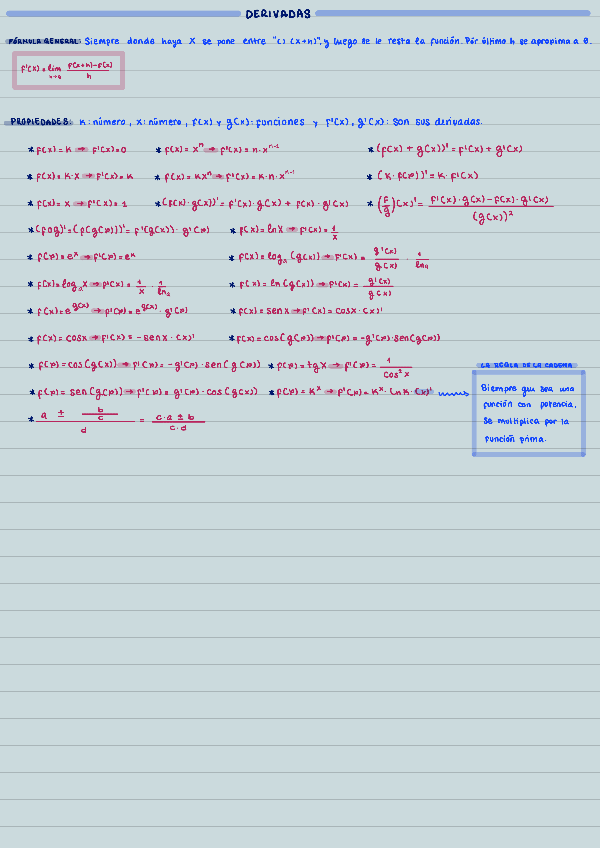 DERIVADAS
FÓRMULA GENERAL: Siempre donde haya X se pone entre "() (x+h)", y luego se le resta la función. Por último h se aproxima a 0.
f'(x) = lim x→0 f(x+h)-f(x) / h
PROPIEDADES: K: número, X: número, f(x) y g(x): funciones y f'(x), g'(x): son sus derivadas.
* f(x) = K → f'(x) = 0 * f(x) = x^n → f'(x) = n·x^n-1 * (f(x) + g(x))' = f'(x) + g'(x)
* f(x) = K·X → f'(x) = K * f(x) = Kx^n → f'(x) = K·n·x^n-1 * (K·f(x))' = K·f'(x)
* f(x) = X → f'(x) = 1 * (f(x)·g(x))' = f'(x)·g(x) + f(x)·g'(x) * (f/g)(x)' = f'(x)·g(x) - f(x)·g'(x) / (g(x))²
* (f∘g)' = (f(g(x)))' = f'(g(x))·g'(x) * f(x) = ln x → f'(x) = 1/x
* f(x) = e^x → f'(x) = e^x * f(x) = log_a (g(x)) → f'(x) = g'(x)/g(x) · 1/ln_a
* f(x) = log_a x → f'(x) = 1/x · 1/ln_a * f(x) = ln (g(x)) → f'(x) = g'(x)/g(x)
* f(x) = e^g(x) → f'(x) = e^g(x) · g'(x) * f(x) = sen x → f'(x) = cos x · (x)'
* f(x) = cos x → f'(x) = -sen x · (x)' * f(x) = cos(g(x)) → f'(x) = -g'(x)·sen(g(x))
* f(x) = cos(g(x)) → f'(x) = -g'(x)·sen(g(x)) * f(x) = tg x → f'(x) = 1/cos² x
* f(x) = sen(g(x)) → f'(x) = g'(x)·cos(g(x)) * f(x) = K^x → f'(x) = K^x · ln K · (x)'
* a ± b/c / d = c·a ± b / c·d
LA REGLA DE LA CADENA
Siempre que sea una
función con potencia,
se multiplica por la
función prima.